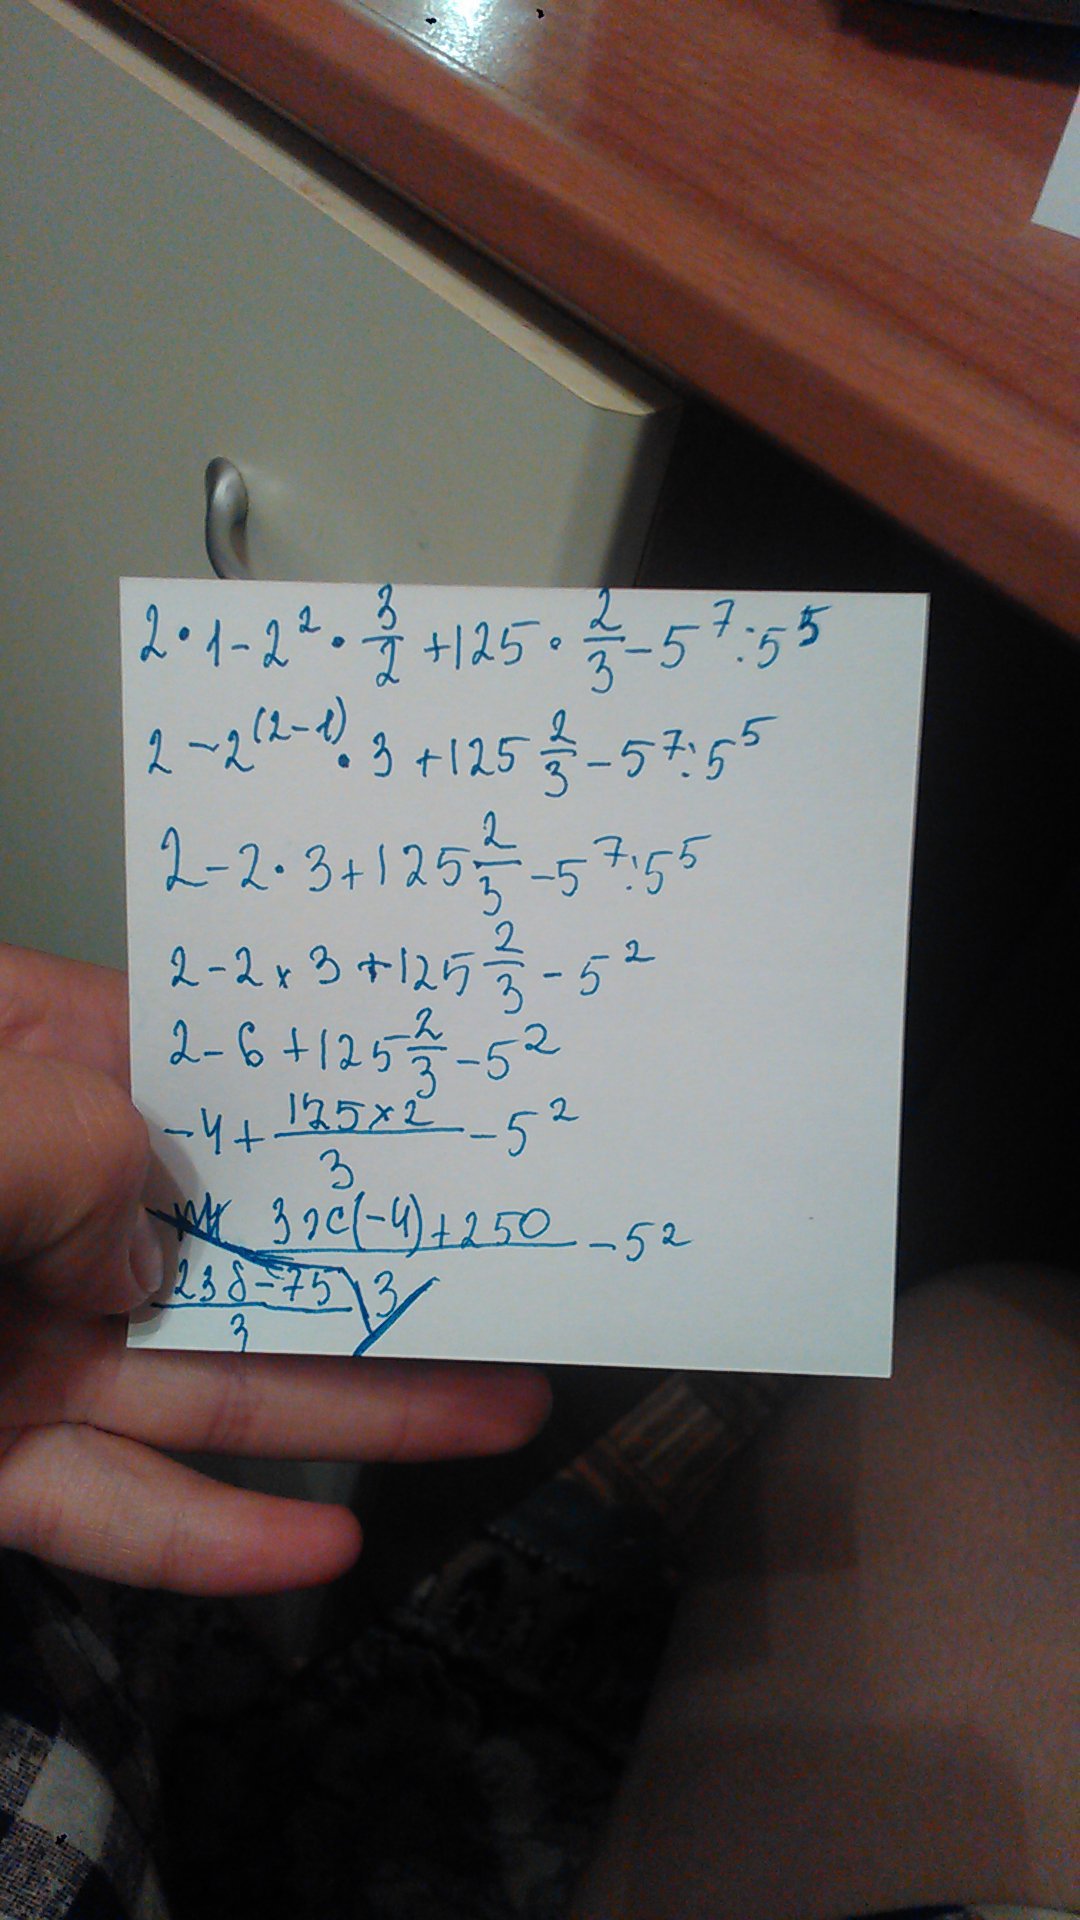 2·1-2²·3/2+125·2/3-5⁷:5⁵
2-2⁽²⁻¹⁾·3+125 2/3-5⁷:5⁵
2-2·3+125 2/3-5⁷:5⁵
2-2×3+125 2/3-5²
2-6+125 2/3-5²
-4+(125×2)/3-5²
3x(-4)+250/3-5²
238-75/3